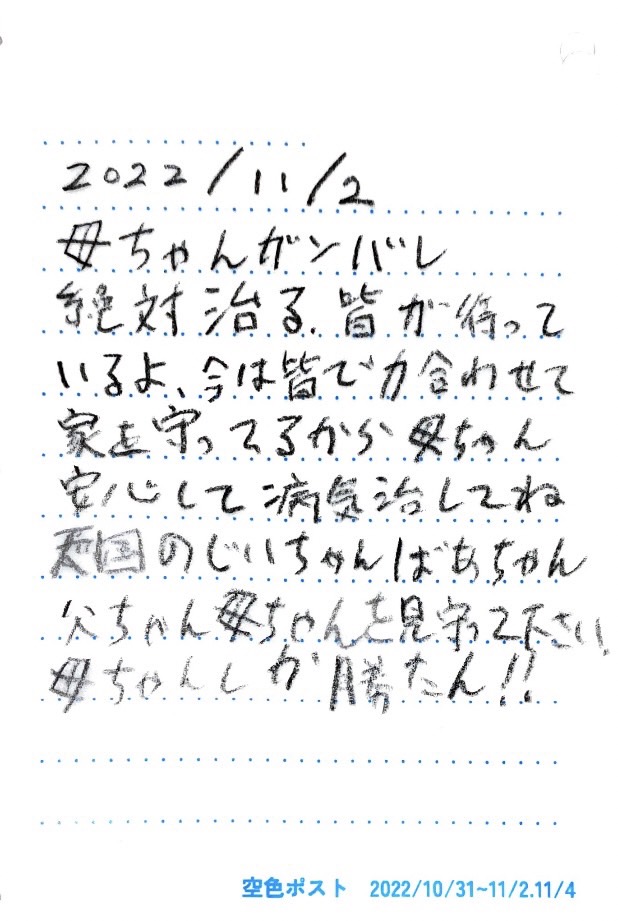 2022/11/2
母ちゃんガンバレ
絶対治る.皆が待って
いるよ、今は皆で力合わせて
家を守ってるから母ちゃん
安心して病気治してね
天国のじいちゃんばあちゃん
父ちゃん母ちゃんを見守って下さい
母ちゃんしか勝たん!!
空色ポスト 2022/10/31~11/2.11/4